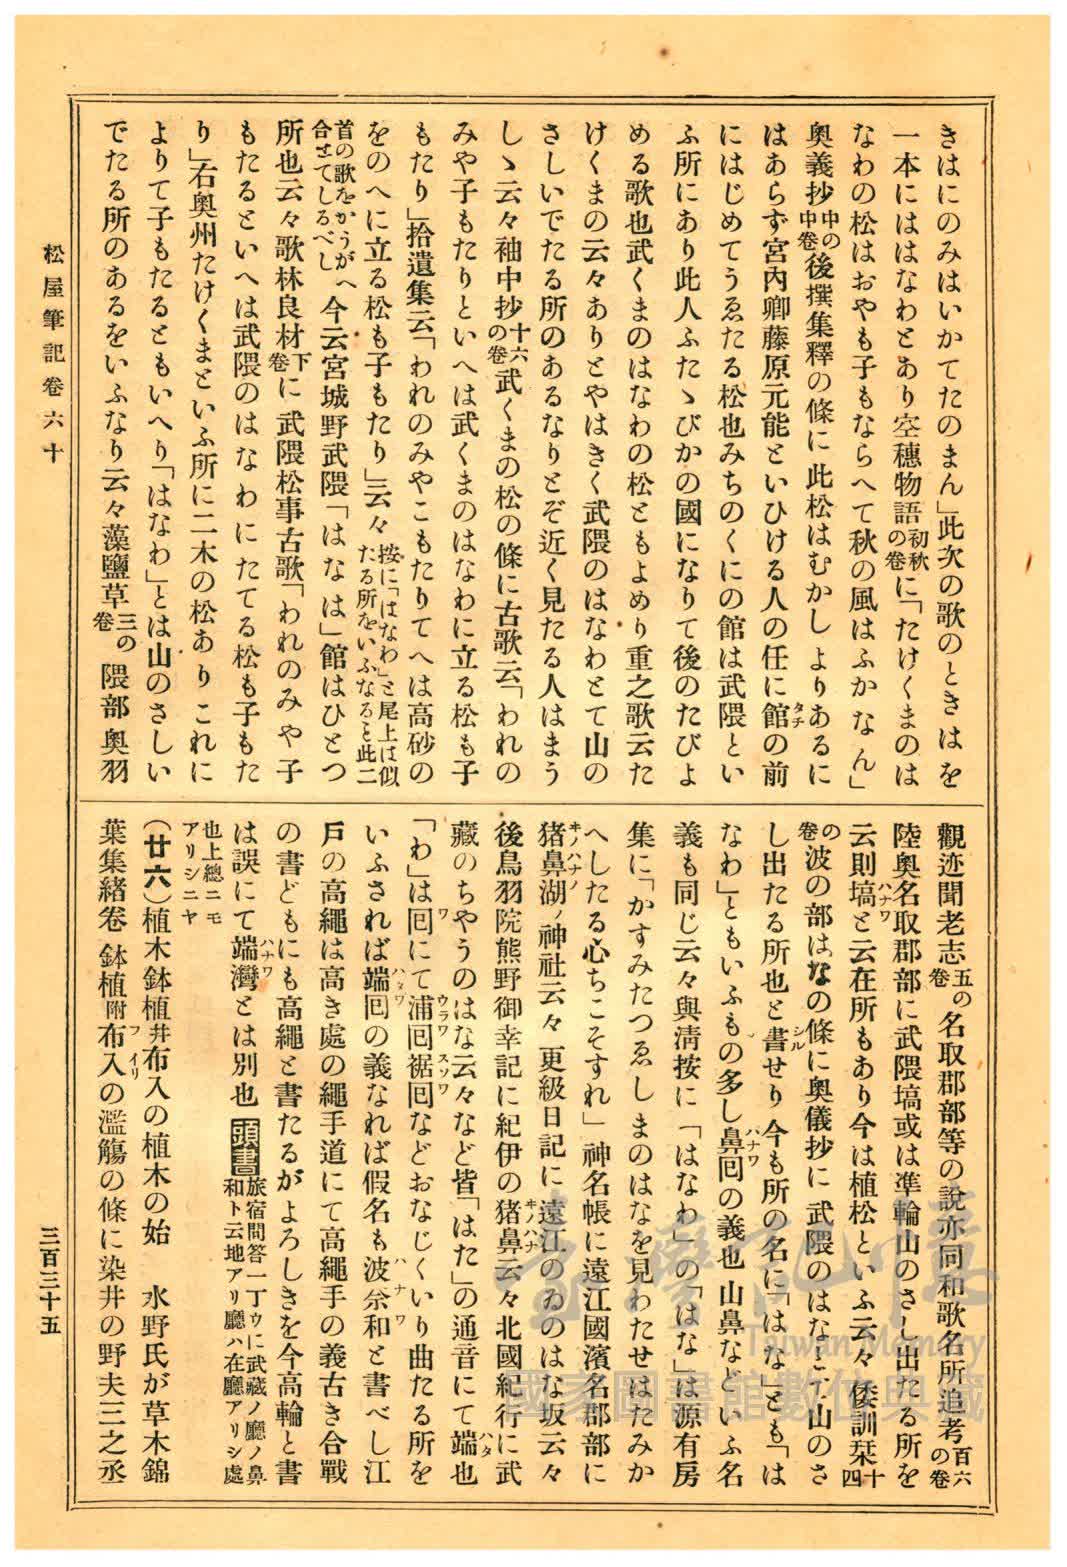 きはにのみはいかてたのまん」此次の歌のときはを
一本にははなわとあり空穗物語初秋の卷に「たけくまのは
なわの松はおやも子もならへて秋の風はふかなん」
奧義抄中の中卷後撰集釋の條に此松はむかしよりあるに
はあらず宮內卿藤原元能といひける人の任に館タチの前
にはじめてうゑたる松也みちのくにの館は武隈とい
ふ所にあり此人ふたゝびかの國になりて後のたびよ
める歌也武くまのはなわの松ともよめり重之歌云た
けくまの云々ありとやはきく武隈のはなわとて山の
さしいでたる所のあるなりとぞ近く見たる人はまう
しゝ云々袖中抄十六の卷武くまの松の條に古歌云「われの
みや子もたりといへは武くまのはなわに立る松も子
もたり」拾遺集云「われのみやこもたりてへは高砂の
をのへに立る松も子もたり」云々按に「はなわ」と尾上は似たる所をいふなると此二
首の歌をかうがへ合せてしるべし今云宮城野武隈「はなは」館はひとつ
所也云々歌林良材下卷に武隈松事古歌「われのみや子
もたるといへは武隈のはなわにたてる松も子もた
り」右奧州たけくまといふ所に二木の松ありこれに
よりて子もたるともいへり「はなわ」とは山のさしい
でたる所のあるをいふなり云々藻鹽草三の卷隈部奧羽
觀迹聞老志五の卷名取郡部等の說亦同和歌名所追考百六の卷
陸奧名取郡部に武隈塙ハナワ或は準輪山のさし出たる所を
云則塙と云在所もあり今は植松といふ云々倭訓栞十四
の卷波の部はなの條に奧儀抄に武隈のはなこ丁山のさ
し出たる所也と書シルせり今も所の名に「はな」とも「は
なわ」ともいふもの多し鼻回ハナワの義也山鼻などいふ名
義も同じ云々與淸按に「はなわ」の「はな」は源有房
集に「かすみたつゑしまのはなを見わたせはたみか
へしたる心ちこそすれ」神名帳に遠江國濱名郡部に
猪鼻湖ヰノハナノノ神社云々更級日記に遠江のゐのはな坂云々
後鳥羽院熊野御幸記に紀伊の猪鼻ヰノハナ云々北國紀行に武
藏のちやうのはな云々など皆「はた」の通音にて端ハタ也
「わ」は回ワにて浦回ウラワ裾回スソワなどおなじくいり曲たる所を
いふされば端回ハタワの義なれば假名も波奈和ハナワと書べし江
戶の高繩は高き處の繩手道にて高繩手の義古き合戰
の書どもにも高繩と書たるがよろしきを今高輪と書
は誤にて端灣ハナワとは別也頭書旅宿問答一丁ウに武藏ノ廳ノ鼻和ト云地アリ廳ハ在廳アリシ處
也上總ニモアリシニヤ
(廿六)植木鉢植幷布入の植木の始　水野氏が草木錦
葉集緒卷鉢植附布入フイリの濫觴の條に染井の野夫三之丞
松屋筆記卷六十
三百三十五
臺灣記憶
Taiwan Memory
國家圖書館數位典藏